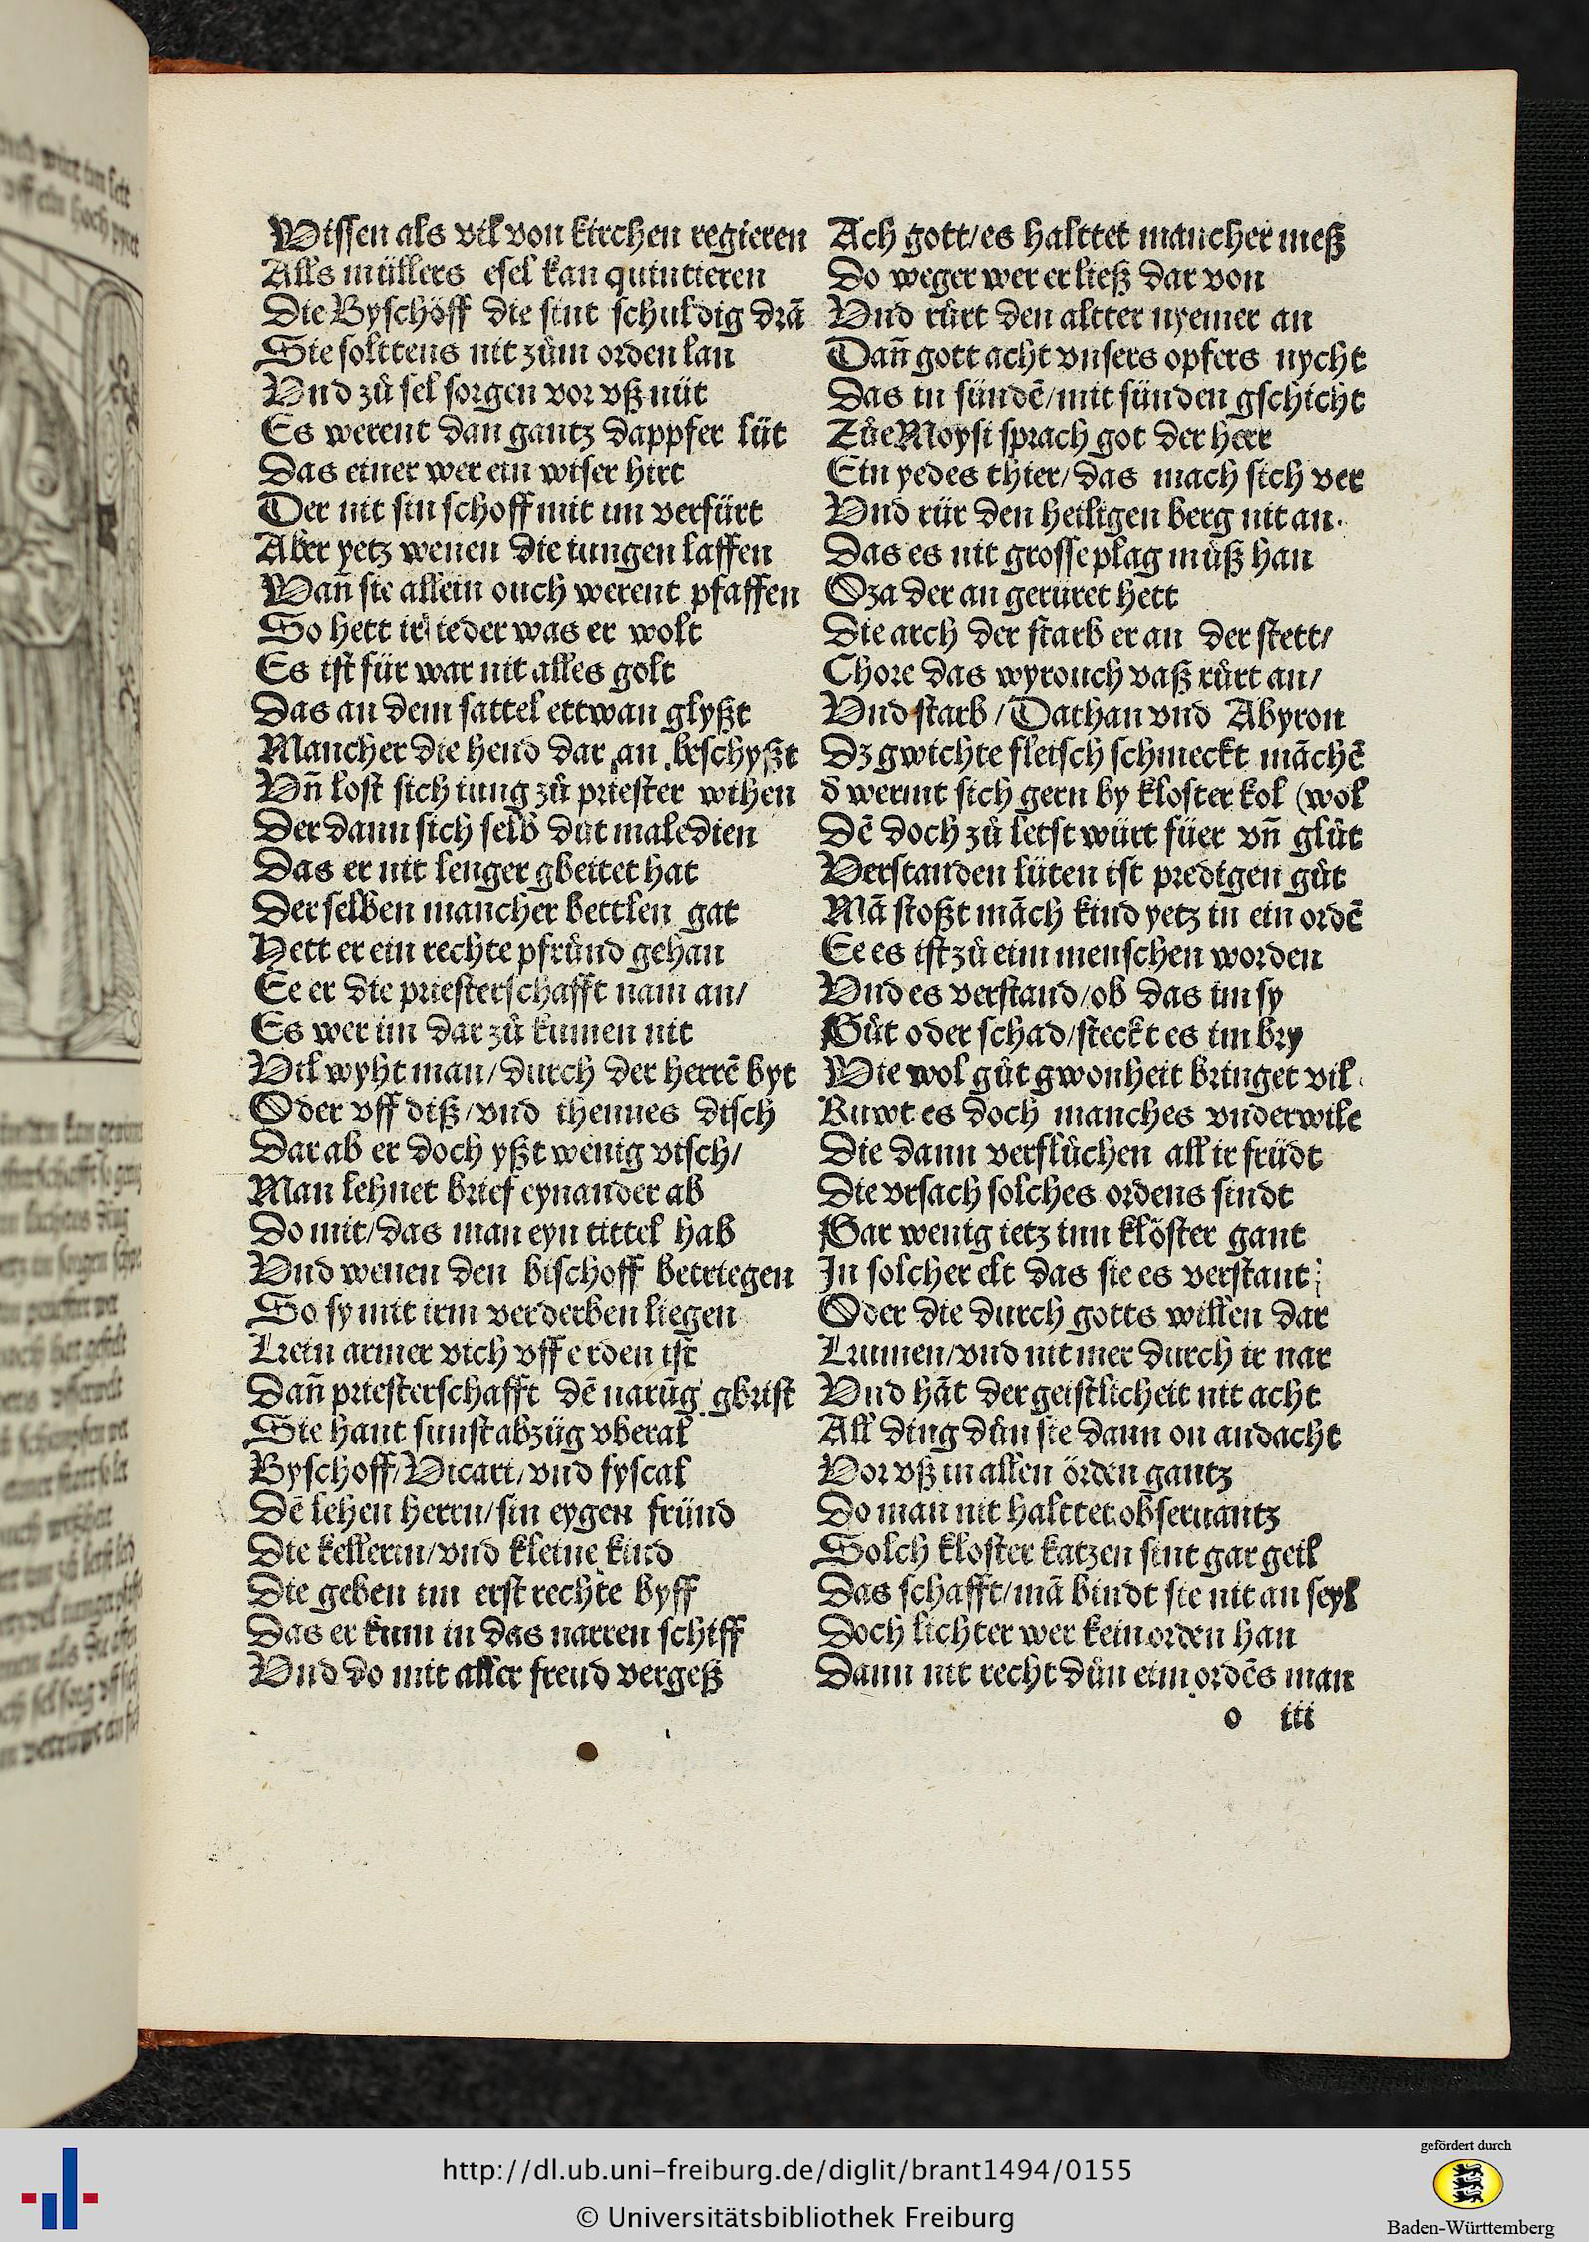 Wissen als vil von kirchen regieren
Alls müllers esel kan quintieren
Die Byschöff die sint schuldig drā
Sie solttens nit zům orden lan
Vnd zů sel sorgen vor vß nüt
Es werent dan gantz dappfer lüt
Das einer wer ein wiser hirt
Der nit sin schoff mit im verfürt
Aber yetz wenen die iungen laffen
Wañ sie allein ouch werent pfaffen
So hett ir ieder was er wolt
Es ist für war nit alles golt
Das an dem sattel ettwan glyßt
Mancher die hend dar an beschyßt
Vñ lost sich iung zů priester wihen
Der dann sich selb důt maledien
Das er nit lenger gbeitet hat
Der selben mancher bettlen gat
Hett er ein rechte pfrůnd gehan
Ee er die priesterschafft nam an/
Es wer im dar zů kumen nit
Vil wyht man/durch der herrē byt
Oder vff diß/vnd ihennes disch
Dar ab er doch yßt wenig visch/
Man lehnet brief eynander ab
Do mit/das man eyn tittel hab
Vnd wenen den bischoff betriegen
So sy mit irm verderben liegen
Kein armer vich vff erden ist
Dañ priesterschafft dē narūg gbrist
Sie hant sunst abzüg vberal
Byschoff/Vicari/vnd fyscal
Dē lehen herrn/sin eygen fründ
Die kellerin/vnd kleine kind
Die geben im erst rechte byff
Das er kum in das narren schiff
Vnd do mit aller freud vergeß
Ach gott/es halttet mancher meß
Do weger wer er ließ dar von
Vnd růrt den altter nyemer an
Dañ gott acht vnsers opfers nycht
Das in sündē/mit sünden gschicht
Zůe Moysi sprach got der herr
Ein yedes thier/das mach sich ver
Vnd rür den heiligen berg nit an.
Das es nit grosse plag müß han
Oza der an geruret hett
Die arch der starb er an der stett/
Chore das wyrouch vaß růrt an/
Vnd starb/Dathan vnd Abyron
Dz gwichte fleisch schmeckt māchē
d wermt sich gern by kloster kol (wol
Dē doch zů letst würt füer vñ glůt
Verstanden lüten ist predigen gůt
Mā stoßt māch kind yetz in ein ordē
Ee es ist zů eim menschen worden
Vnd es verstand/ob das im sy
Gůt oder schad/steckt es im bry
Wie wol gůt gwonheit bringet vil
Ruwt es doch manches vnderwile
Die dann verflůchen all ir früdt
Die vrsach solches ordens sindt
Gar wenig ietz inn klöster gant
In solcher elt das sie es verstant
Oder die durch gotts willen dar
Kumen/vnd nit mer durch ir nar
Vnd hāt der geistlicheit nit acht
All ding důn sie dann on andacht
Vor vß in allen örden gantz
Do man nit halttet obseruantz
Solch kloster katzen sint gar geil
Das schafft/mā bindt sie nit an seyl
Doch lichter wer kein orden han
Dann nit recht důn eim ordēs man
o iii
http://dl.ub.uni-freiburg.de/diglit/brant1494/0155
© Universitätsbibliothek Freiburg
gefördert durch
Baden-Württemberg